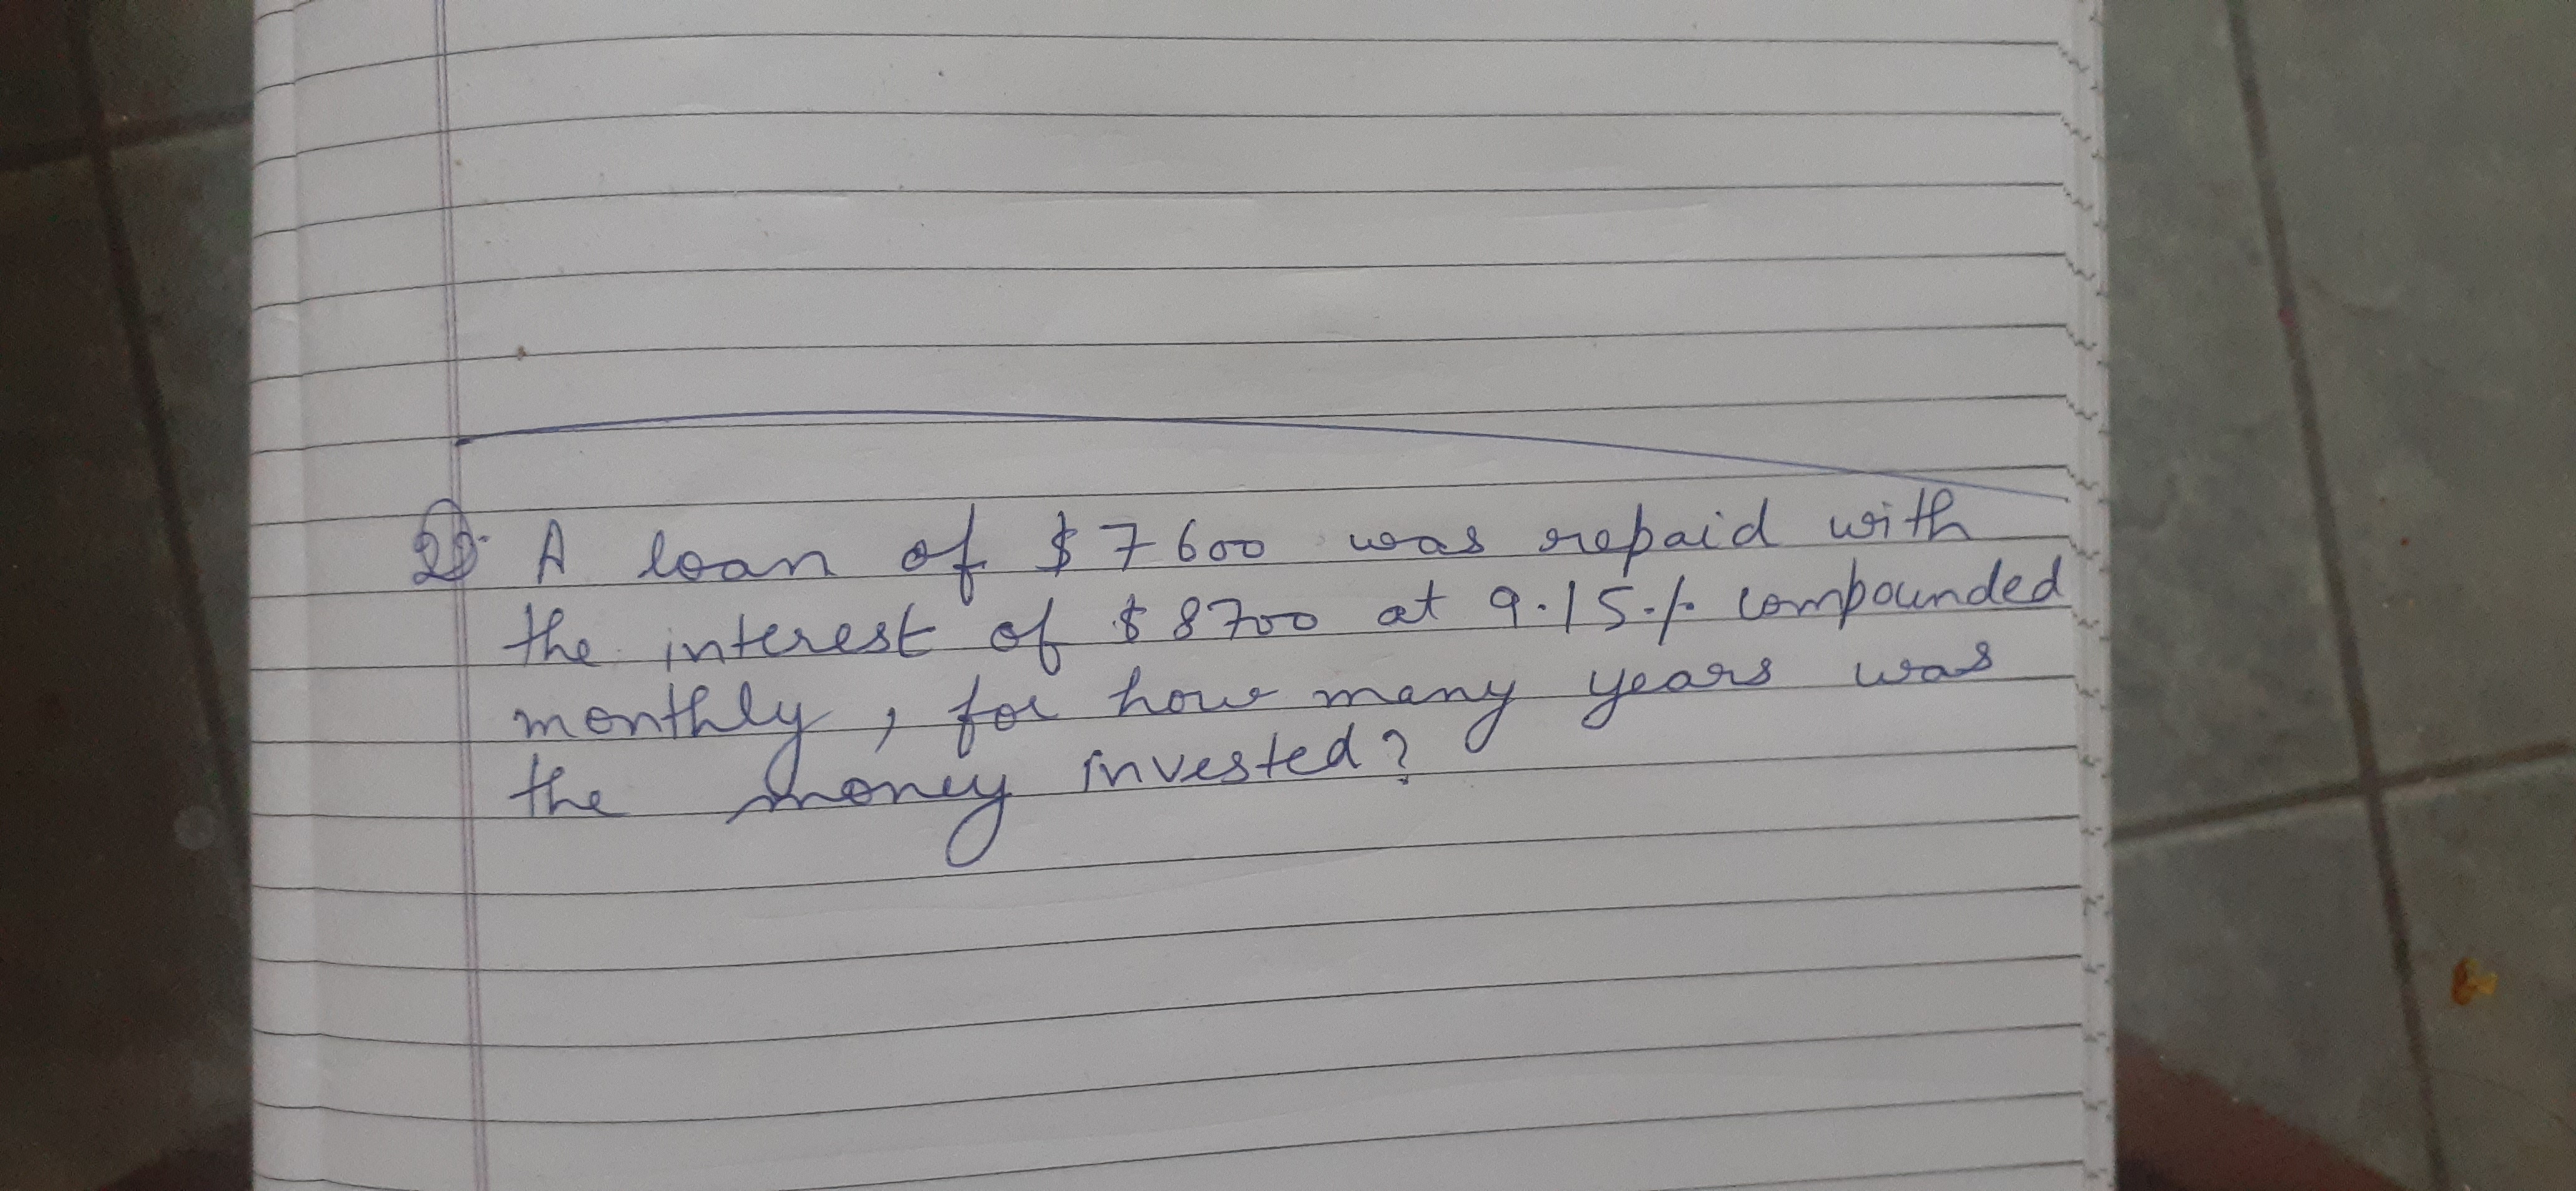 Q2. A loan of $ 7600 was repaid with
the interest of $ 8700 at 9.15 % compounded
monthly, for how many years was
the money invested?